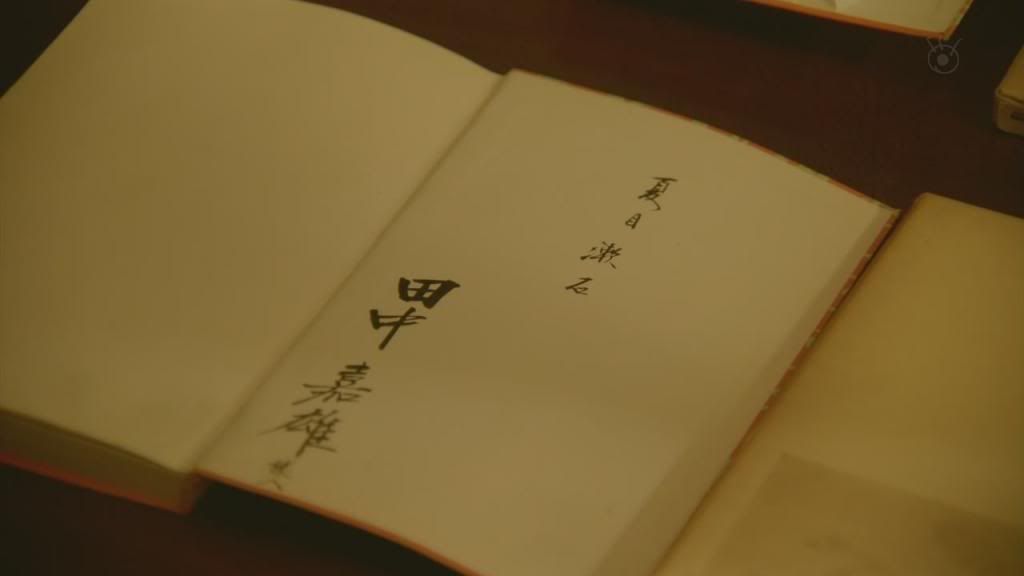 夏目漱石
田中嘉雄